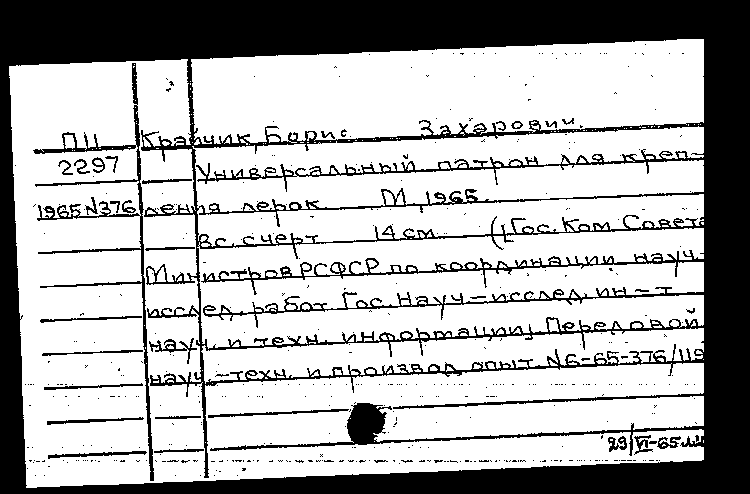 П11 Крайчик, Борис Захарович.
2297 Универсальный патрон для креп-
1965 N376 ления лерок М, 1965.
8 с. с черт 14 см. (Гос. Ком. Совета
Министров РСФСР по координации науч.
исслед. работ Гос. Науч-исслед. ин-т
науч. и техн. информации) Передовой
науч.-техн. и производ. опыт. N6-65-376/119
29/VI-65